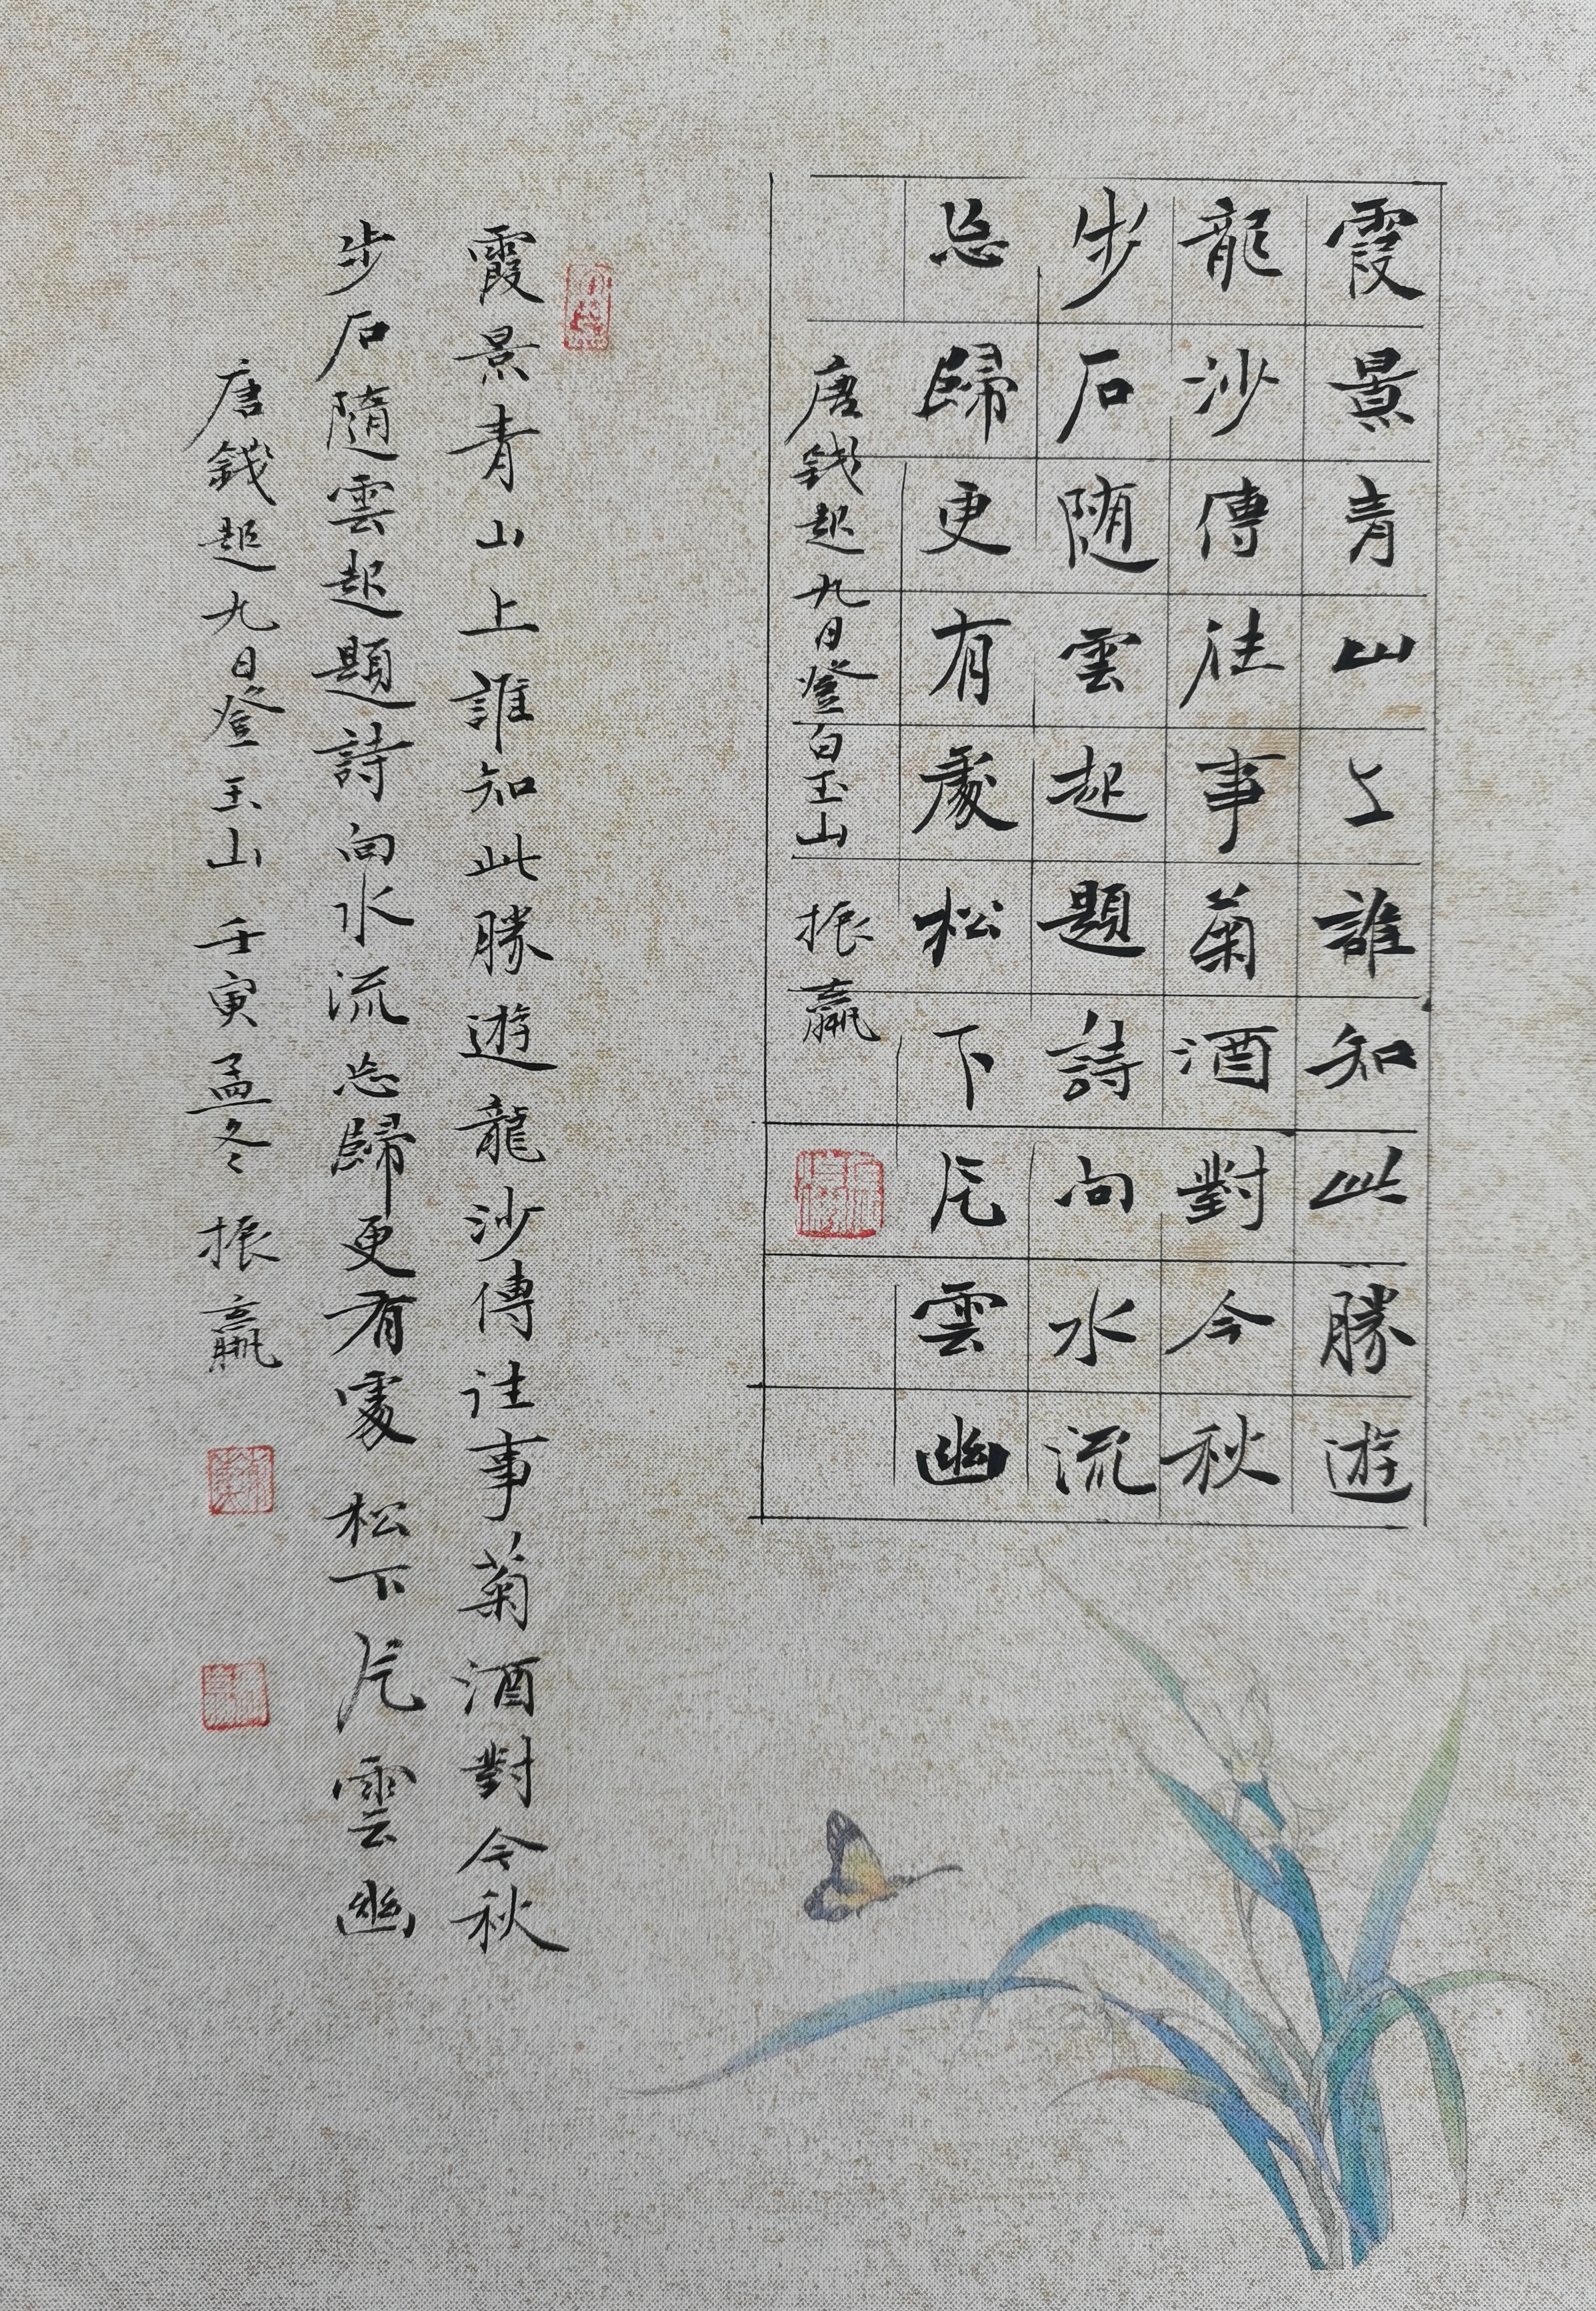 霞景青山上誰知此勝遊
龍沙傳往事菊酒對今秋
步石随雲起題詩向水流
忘歸更有處松下片雲幽
唐錢起九日登白玉山 振贏
霞景青山上誰知此勝遊龍沙傳往事菊酒對今秋
步石隨雲起題詩向水流忘歸更有處松下片雲幽
唐錢起九日登玉山 壬寅孟冬 振贏